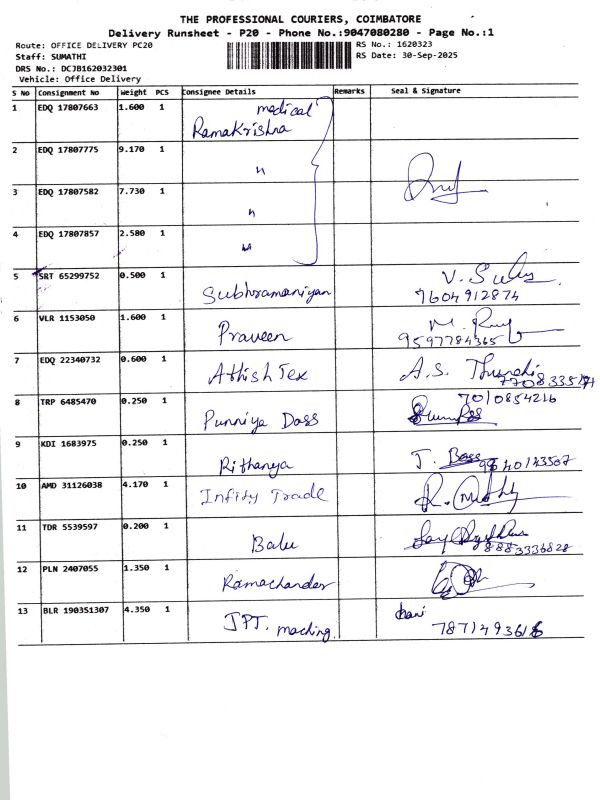 THE PROFESSIONAL COURIERS, COIMBATORE
Delivery Runsheet - P20 - Phone No.:9047080280 - Page No.:1
Route: OFFICE DELIVERY PC20
Staff: SUMATHI
DRS No.: DCJB162032301
Vehicle: Office Delivery
RS No.: 1620323
RS Date: 30-Sep-2025
S No Consignment No Weight PCS Consignee Details Remarks Seal & Signature
1 EDQ 17807663 1.600 1 medical
Ramakrishna
2 EDQ 17807775 9.170 1 "
3 EDQ 17807582 7.730 1 "
4 EDQ 17807857 2.580 1 "
5 SRT 65299752 0.500 1 Subhramaniyan
9604912874
6 VLR 1153050 1.600 1 Praveen
9597784365
7 EDQ 22340732 0.600 1 Athish Tex A.S.
8 TRP 6485470 0.250 1 Punniya Doss 7010854216
9 KDI 1683975 0.250 1 Rithanya J. Bass
10 AMD 31126038 4.170 1 Infity Trade
11 TDR 5539597 0.200 1 Balu
8883336828
12 PLN 2407055 1.350 1 Ramachander
13 BLR 190351307 4.350 1 JPT. maching.